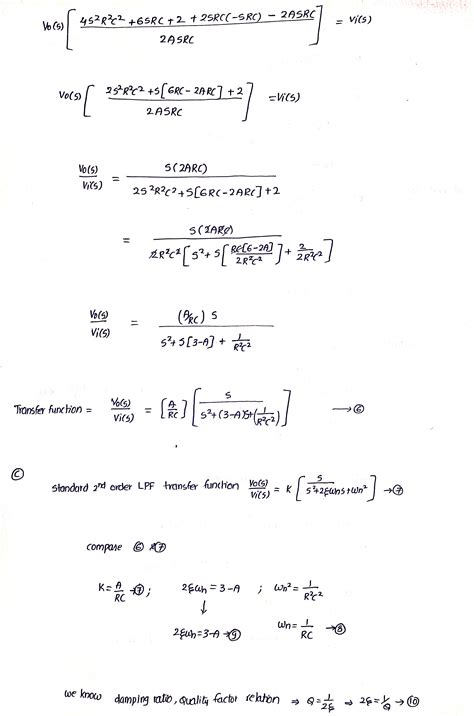 Vo(s) [ (4S²R²C² + 6SRC + 2 + 2SRC(-SRC) - 2ASRC) / 2ASRC ] = Vi(s)
Vo(s) [ (2S²R²C² + S[6RC - 2ARC] + 2) / 2ASRC ] = Vi(s)
Vo(s)/Vi(s) = S(2ARC) / (2S²R²C² + S[6RC - 2ARC] + 2)
= S(2ARC) / (2R²C² [ S² + S [ RC[6-2A] / 2R²C² ] + 2/2R²C² ])
Vo(s)/Vi(s) = (A/RC) S / (S² + S[3-A] + 1/R²C²)
Transfer function = Vo(s)/Vi(s) = [A/RC] [ S / (S² + (3-A)S + (1/R²C²)) ] → ⑥
Ⓒ
Standard 2nd order LPF transfer function Vo(s)/Vi(s) = K [ S / (S² + 2ξωns + ωn²) ] → ⑦
compare ⑥ & ⑦
K = A/RC → ⑦ ; 2ξωn = 3-A ; ωn² = 1/R²C²
↓
2ξωn = 3-A → ⑨ ωn = 1/RC → ⑧
we know damping ratio, quality factor relation ⇒ Q = 1/2ξ ⇒ 2ξ = 1/Q → ⑩